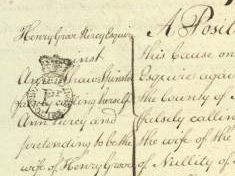 Henry Grove Piercy Esquire
against
Ann Shaw Spinster
falsely calling herself
Ann Piercy and
pretending to be the
wife of Henry Grove
A Posit
this Cause on
Esquire agai
the County of
falsely callin
the wife of the
of Nullity of